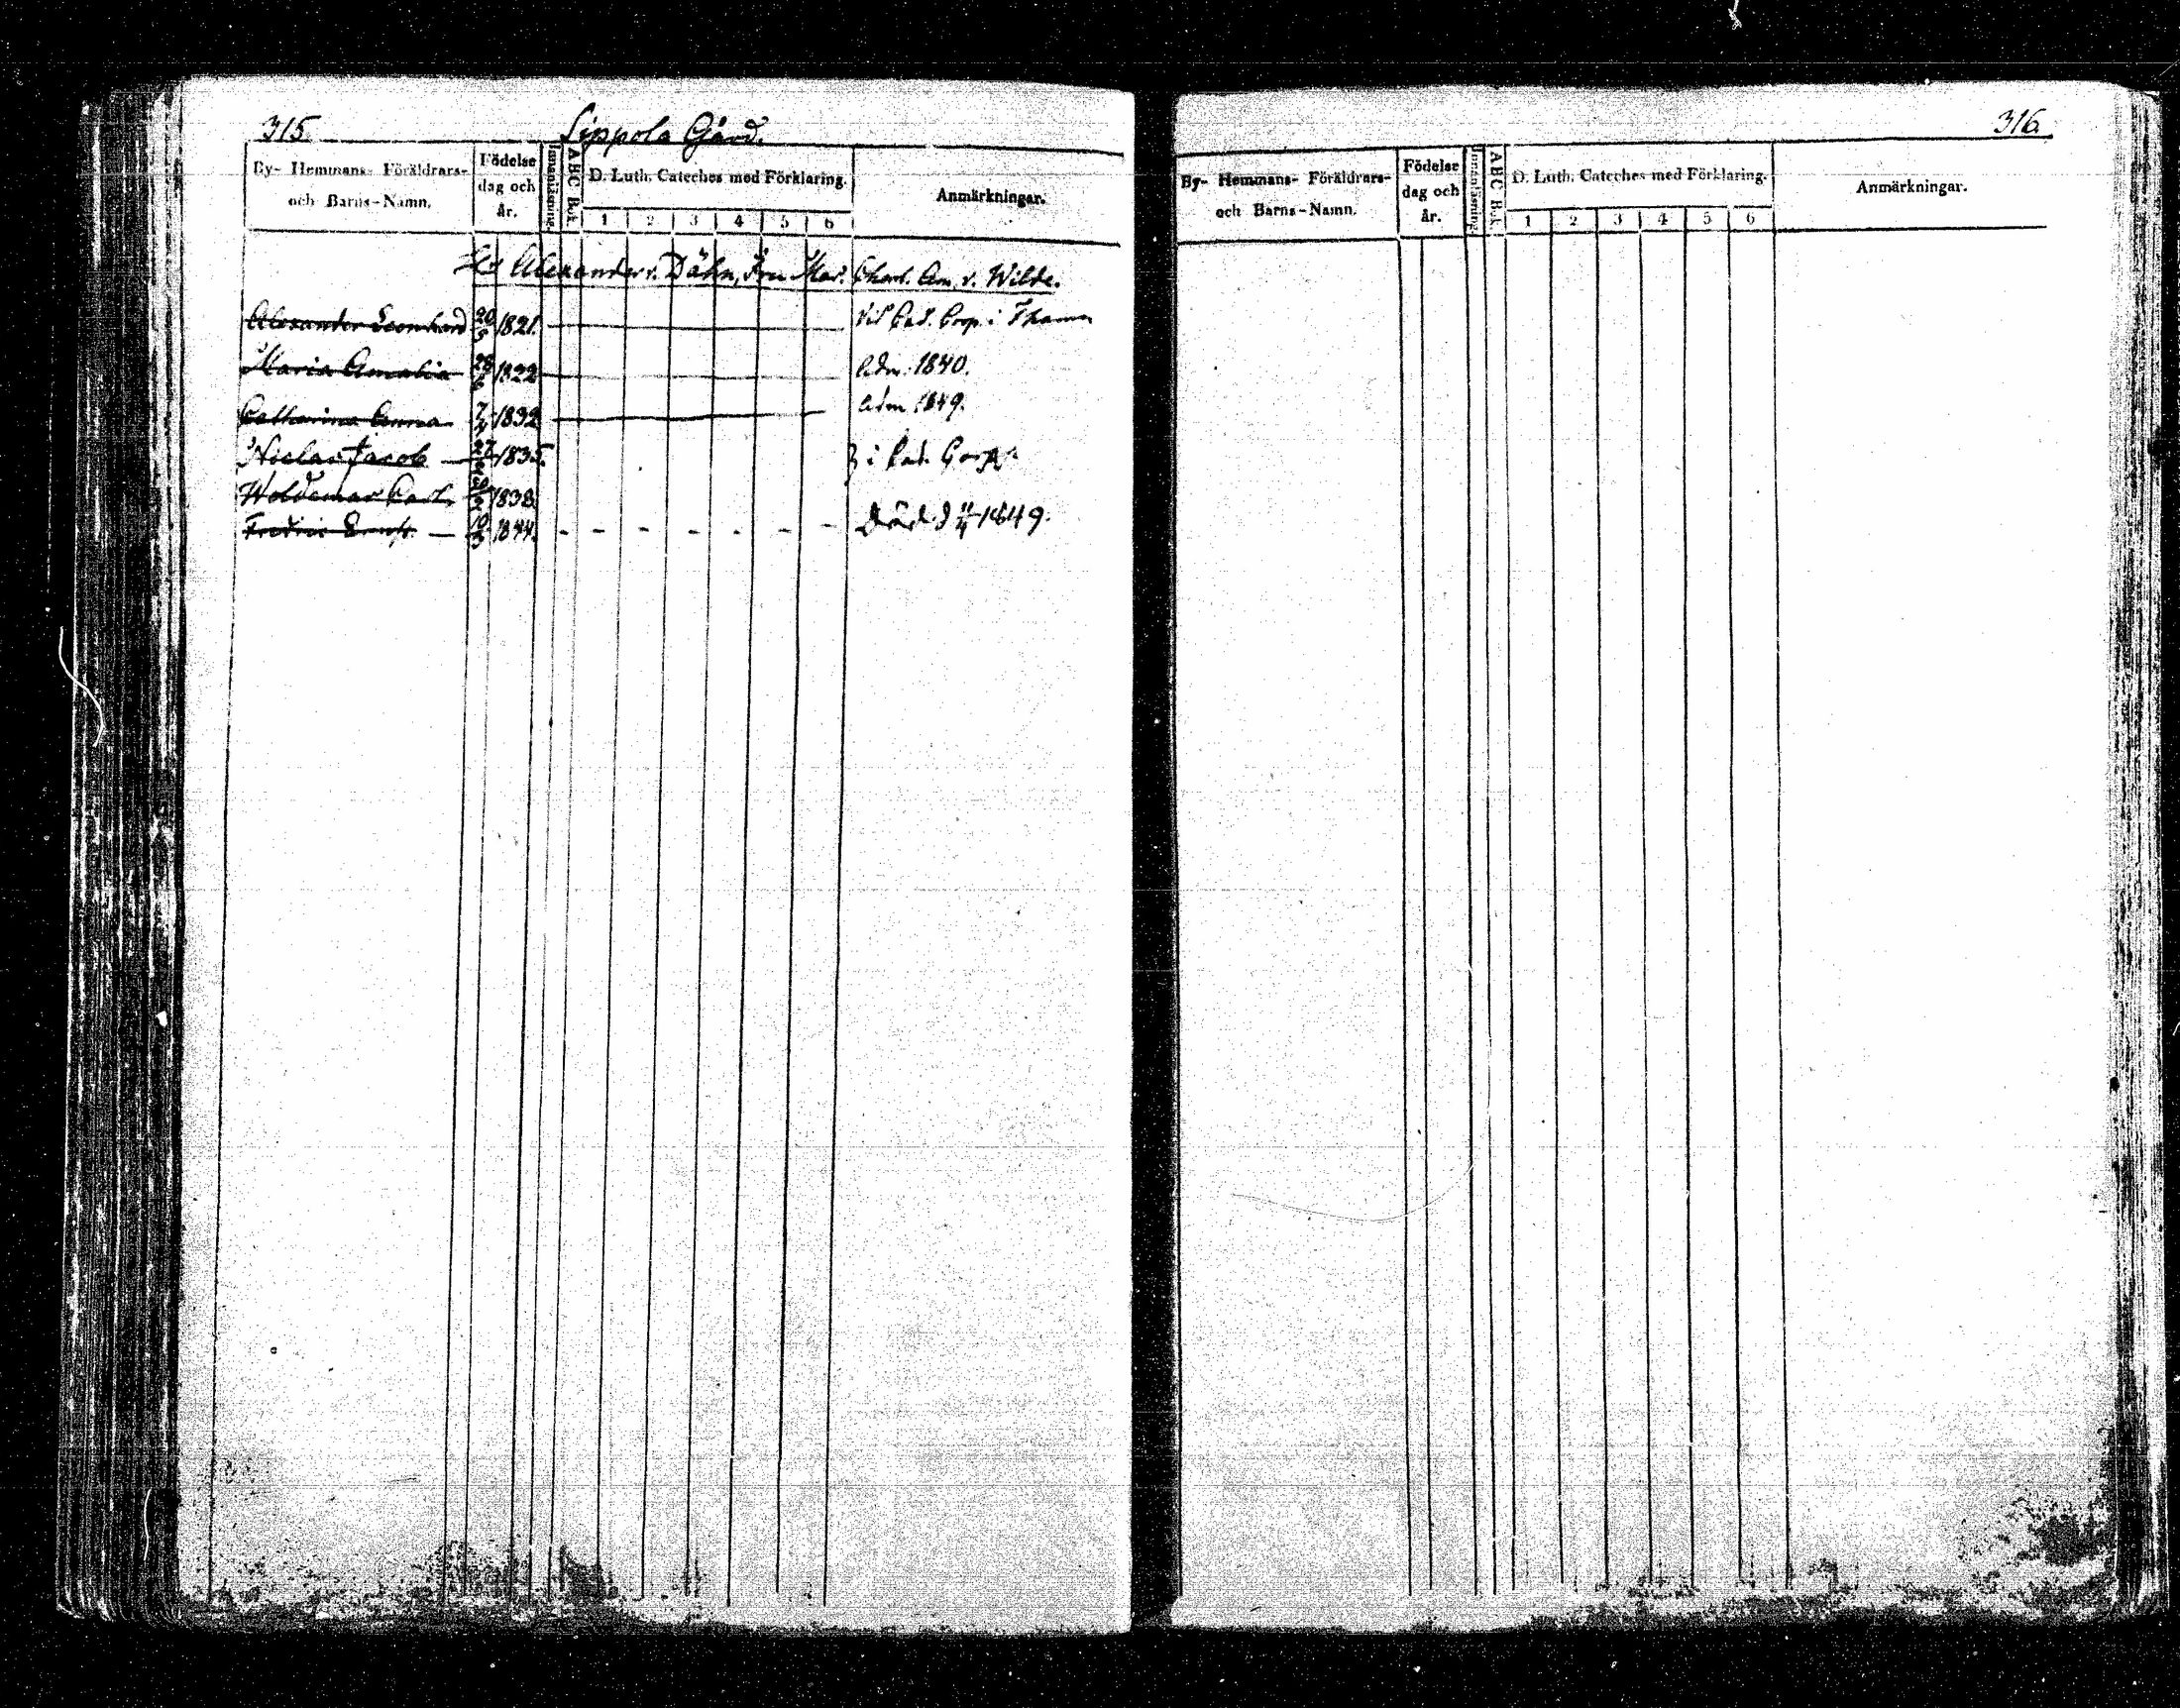 315
Sippola Gård.
By- Hemmans- Föräldrars- och Barns-Namn.
Födelse dag och år.
Innanläsning.
ABC Bok.
D. Luth. Cateches med Förklaring.
1 2 3 4 5 6
Anmärkningar.
Hr Alexander v. Dähn, Fru Mar. Charl. Am. v. Wilde.
Alexander Leonhard 20/5 1821. Vid Cad. Corp. i Fhamn
Maria Amalia 1822 Adm. 1840.
Catharina Anna 7/4 1832 Adm 1849.
Niclas Jacob 1835. } i Cad. Corps
Woldemar Carl 1838.
Fredric Ernst 1844. Död. d 11/4 1849.
316.
By- Hemmans- Föräldrars- och Barns-Namn.
Födelse dag och år.
Innanläsning.
ABC Bok.
D. Luth. Cateches med Förklaring.
1 2 3 4 5 6
Anmärkningar.